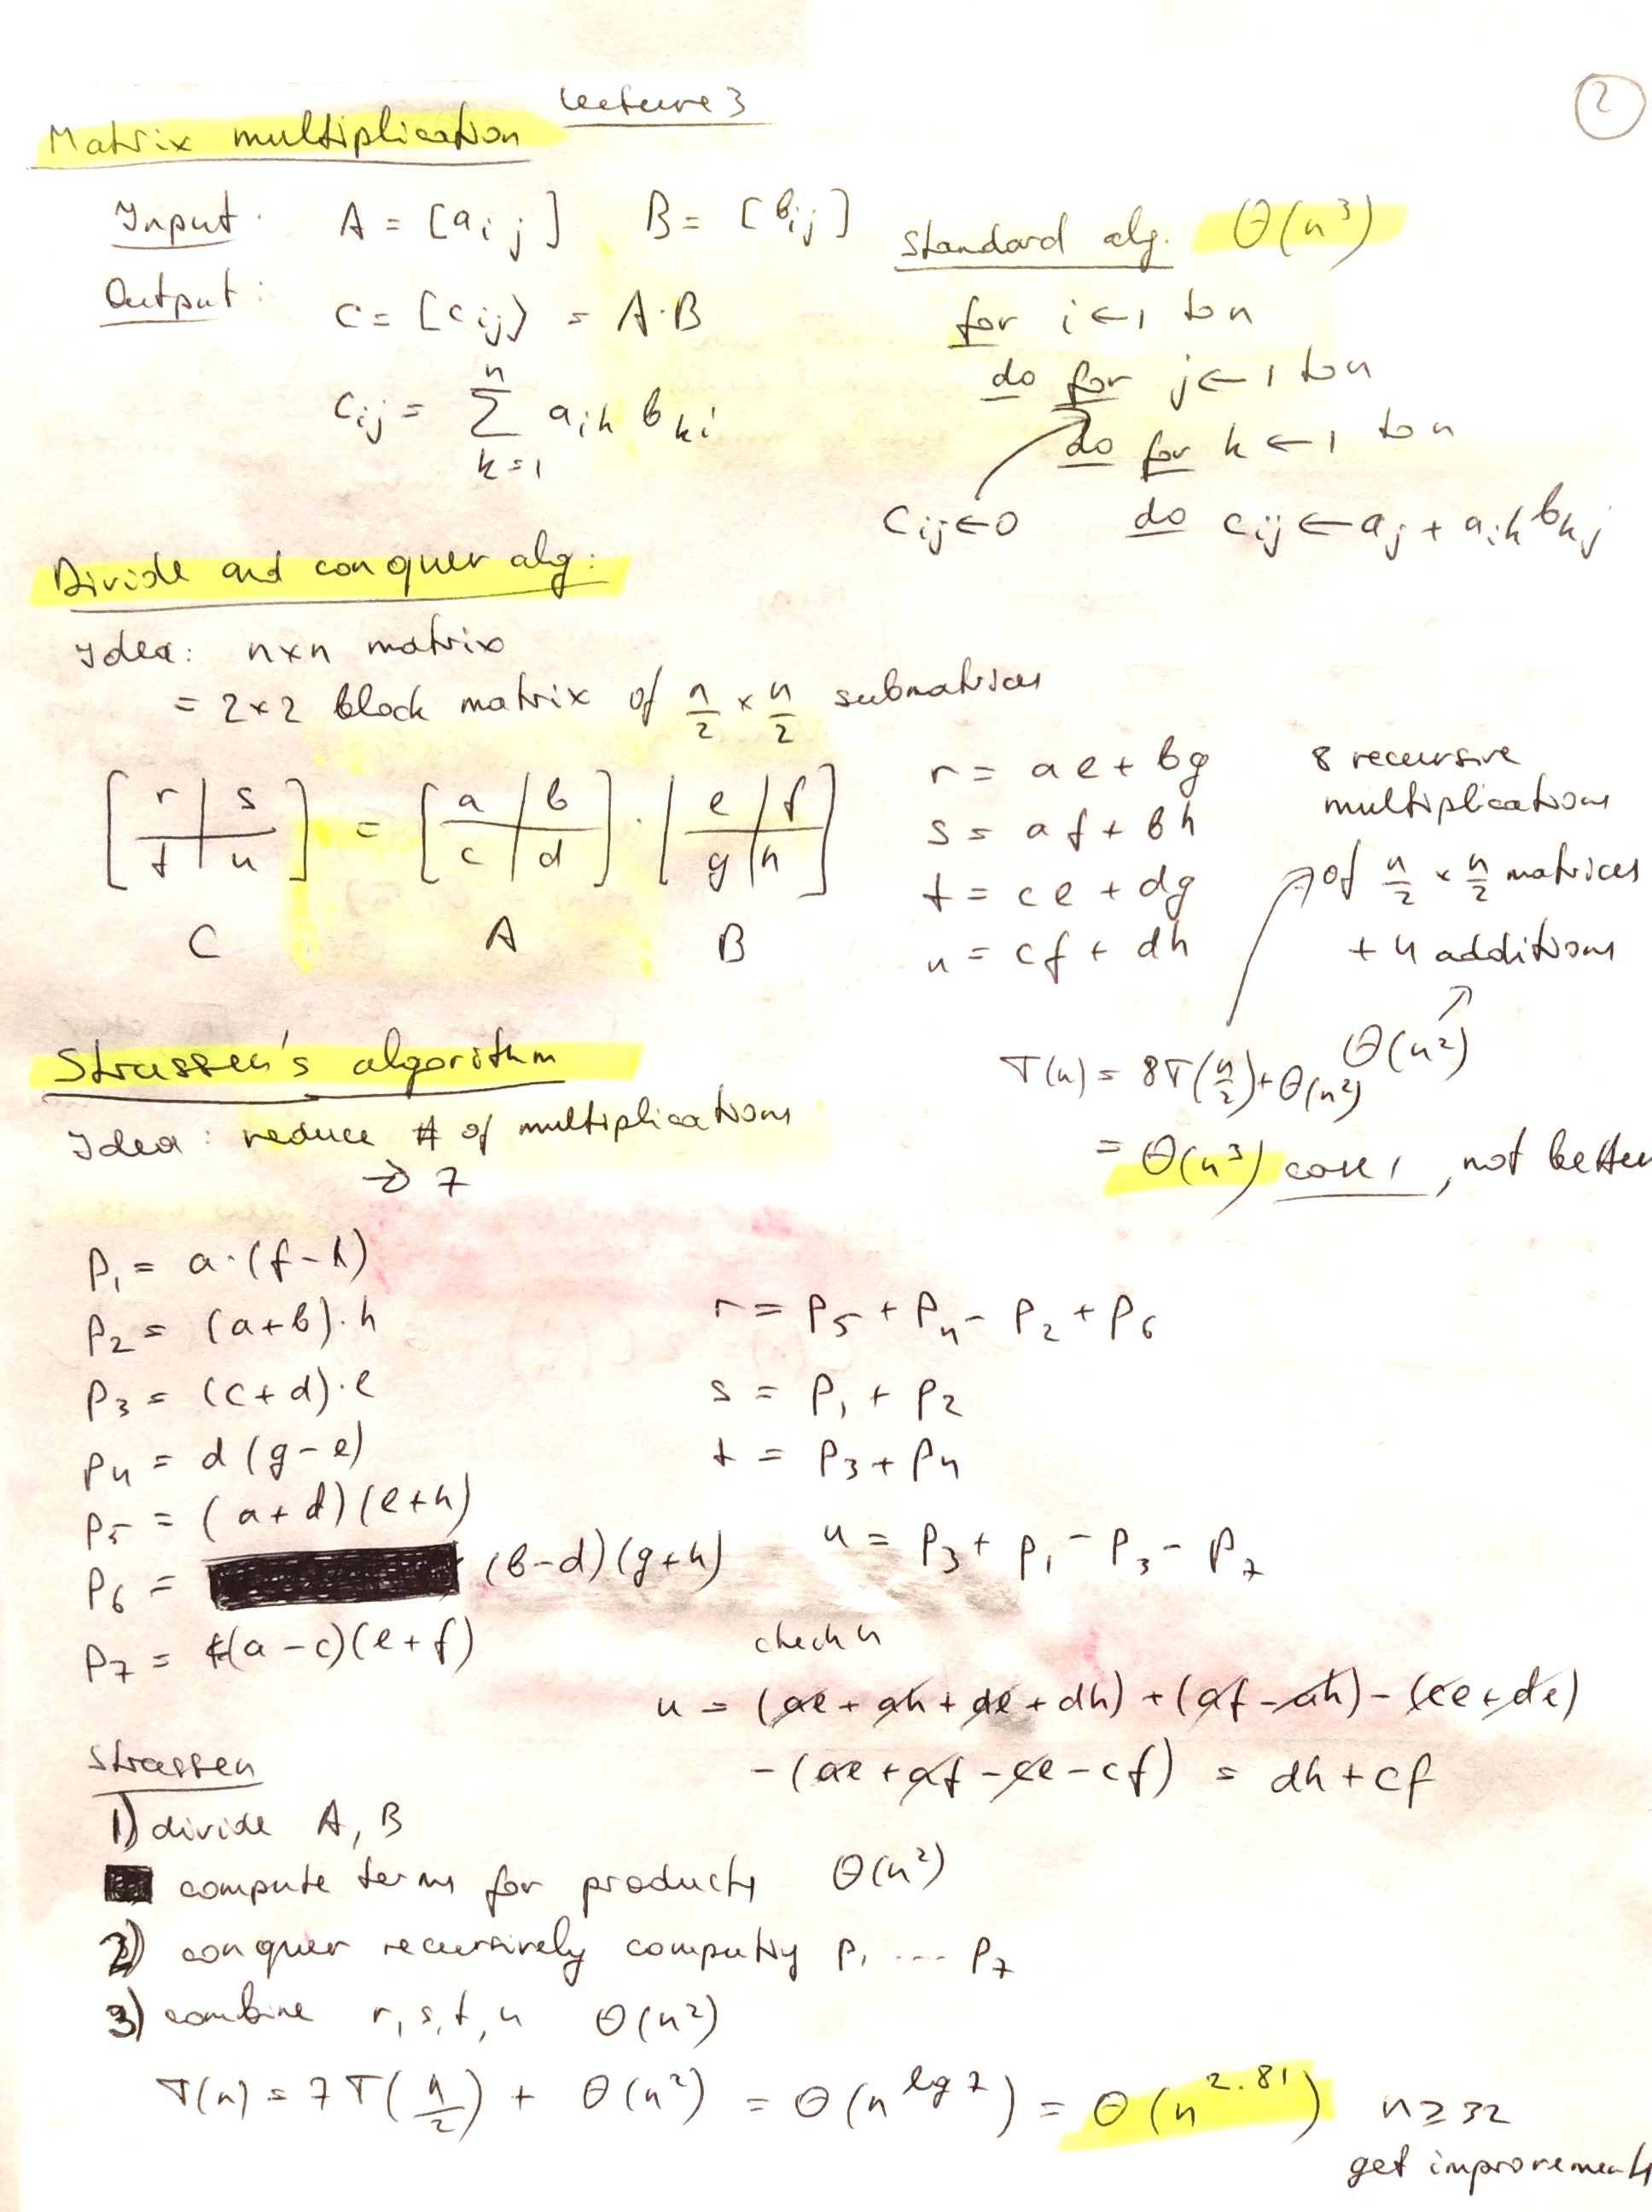 Lecture 3
2
Matrix multiplication
Input: A = [aij] B = [bij]
Output: C = [cij] = A·B
cij = n Σ k=1 aik bki
Standard alg. Θ(n³)
for i ← 1 to n
do for j ← 1 to n
do for k ← 1 to n
Cij ← 0 do cij ← aj + aik bkj
Divide and conquer alg:
Idea: n×n matrix
= 2×2 block matrix of n/2 × n/2 submatrices
[ r | s ] = [ a | b ] · [ e | f ]
[ t | u ] [ c | d ] [ g | h ]
C A B
r = ae + bg
s = af + bh
t = ce + dg
u = cf + dh
8 recursive
multiplications
of n/2 × n/2 matrices
+ 4 additions
Θ(n²)
T(n) = 8T(n/2) + Θ(n²)
= Θ(n³) case 1, not better
Strassen's algorithm
Idea: reduce # of multiplications
→ 7
P1 = a·(f-h)
P2 = (a+b)·h
P3 = (c+d)·e
P4 = d(g-e)
P5 = (a+d)(e+h)
P6 = (b-d)(g+h)
P7 = (a-c)(e+f)
r = P5 + P4 - P2 + P6
s = P1 + P2
t = P3 + P4
u = P3 + P1 - P3 - P7
check u
u = (ae + ah + de + dh) + (af - ah) - (ce + de)
- (ae + af - ce - cf) = dh + cf
Strassen
1) divide A, B
compute terms for products Θ(n²)
2) conquer recursively computing P1 .... P7
3) combine r, s, t, u Θ(n²)
T(n) = 7T(n/2) + Θ(n²) = Θ(n^lg 7) = Θ(n^2.81) n ≥ 32
get improvements